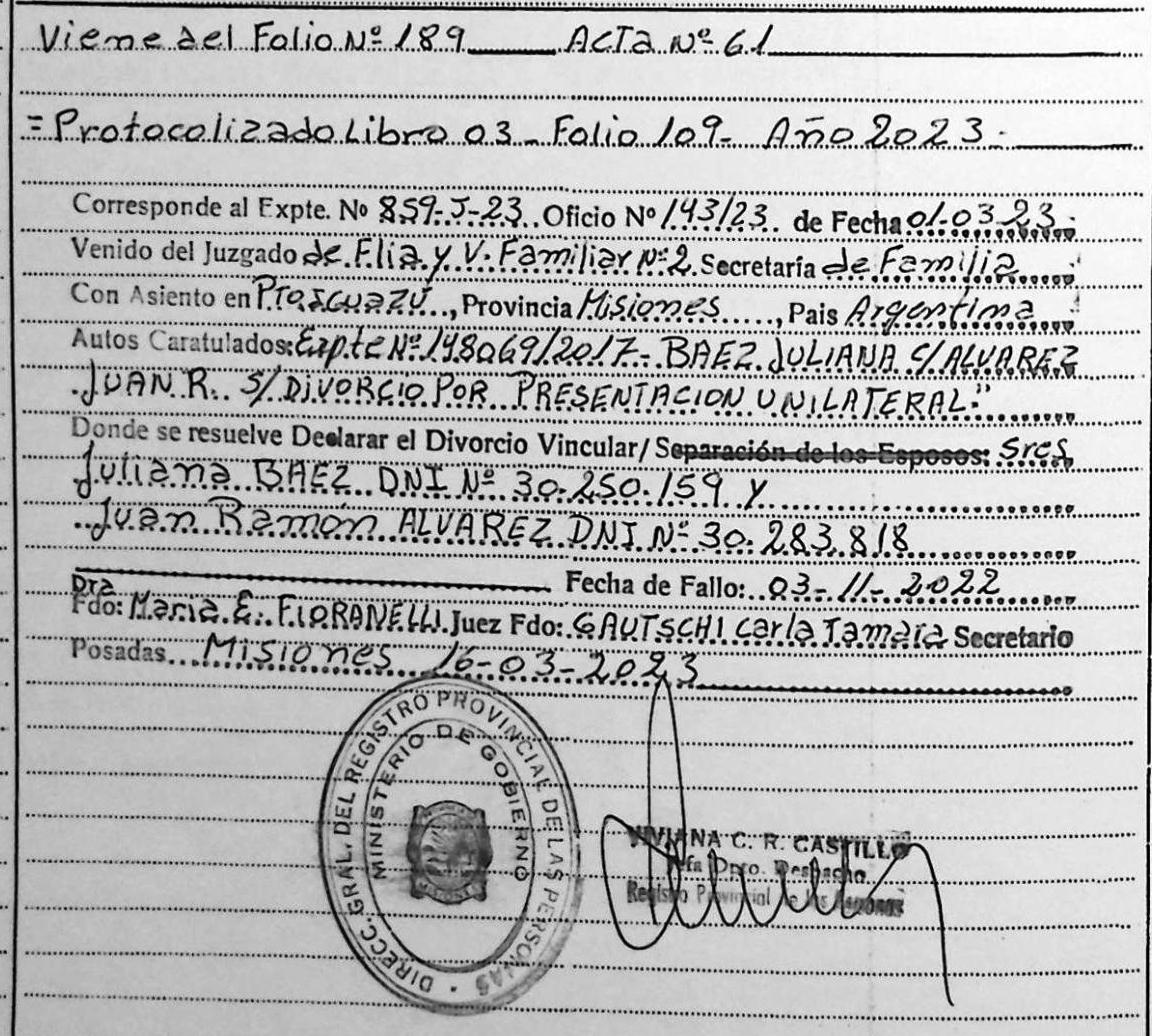 Viene del Folio Nº 189 ACTA Nº 61
= Protocolizado Libro 03 - Folio 109 - Año 2023.
Corresponde al Expte. No 859-J-23 Oficio Nº 143/23 de Fecha 01-03-23.
Venido del Juzgado de Flia y V. Familiar Nº 2 Secretaría de Familia
Con Asiento en Pto. Iguazú, Provincia Misiones, Pais Argentina
Autos Caratulados: Expte Nº 148069/2017- BAEZ JULIANA C/ ALVAREZ
JUAN R. S/ DIVORCIO POR PRESENTACION UNILATERAL"
Donde se resuelve Declarar el Divorcio Vincular/ Separación de los Esposos: Sres
Juliana BAEZ DNI Nº 30.250.159 y
Juan Ramón ALVAREZ DNI Nº 30.283.818
Fecha de Fallo: 03-11-2022
Dra
Fdo: Maria E. FIORANELLI Juez Fdo: GAUTSCHI Carla Tamara Secretario
Posadas Misiones 16-03-2023
DIRECC. GRAL. DEL REGISTRO PROVINCIAL DE LAS PERSONAS
MINISTERIO DE GOBIERNO
VIVIANA C. R. CASTILLO
Jefa Dpto. Despacho
Registro Provincial de las Personas